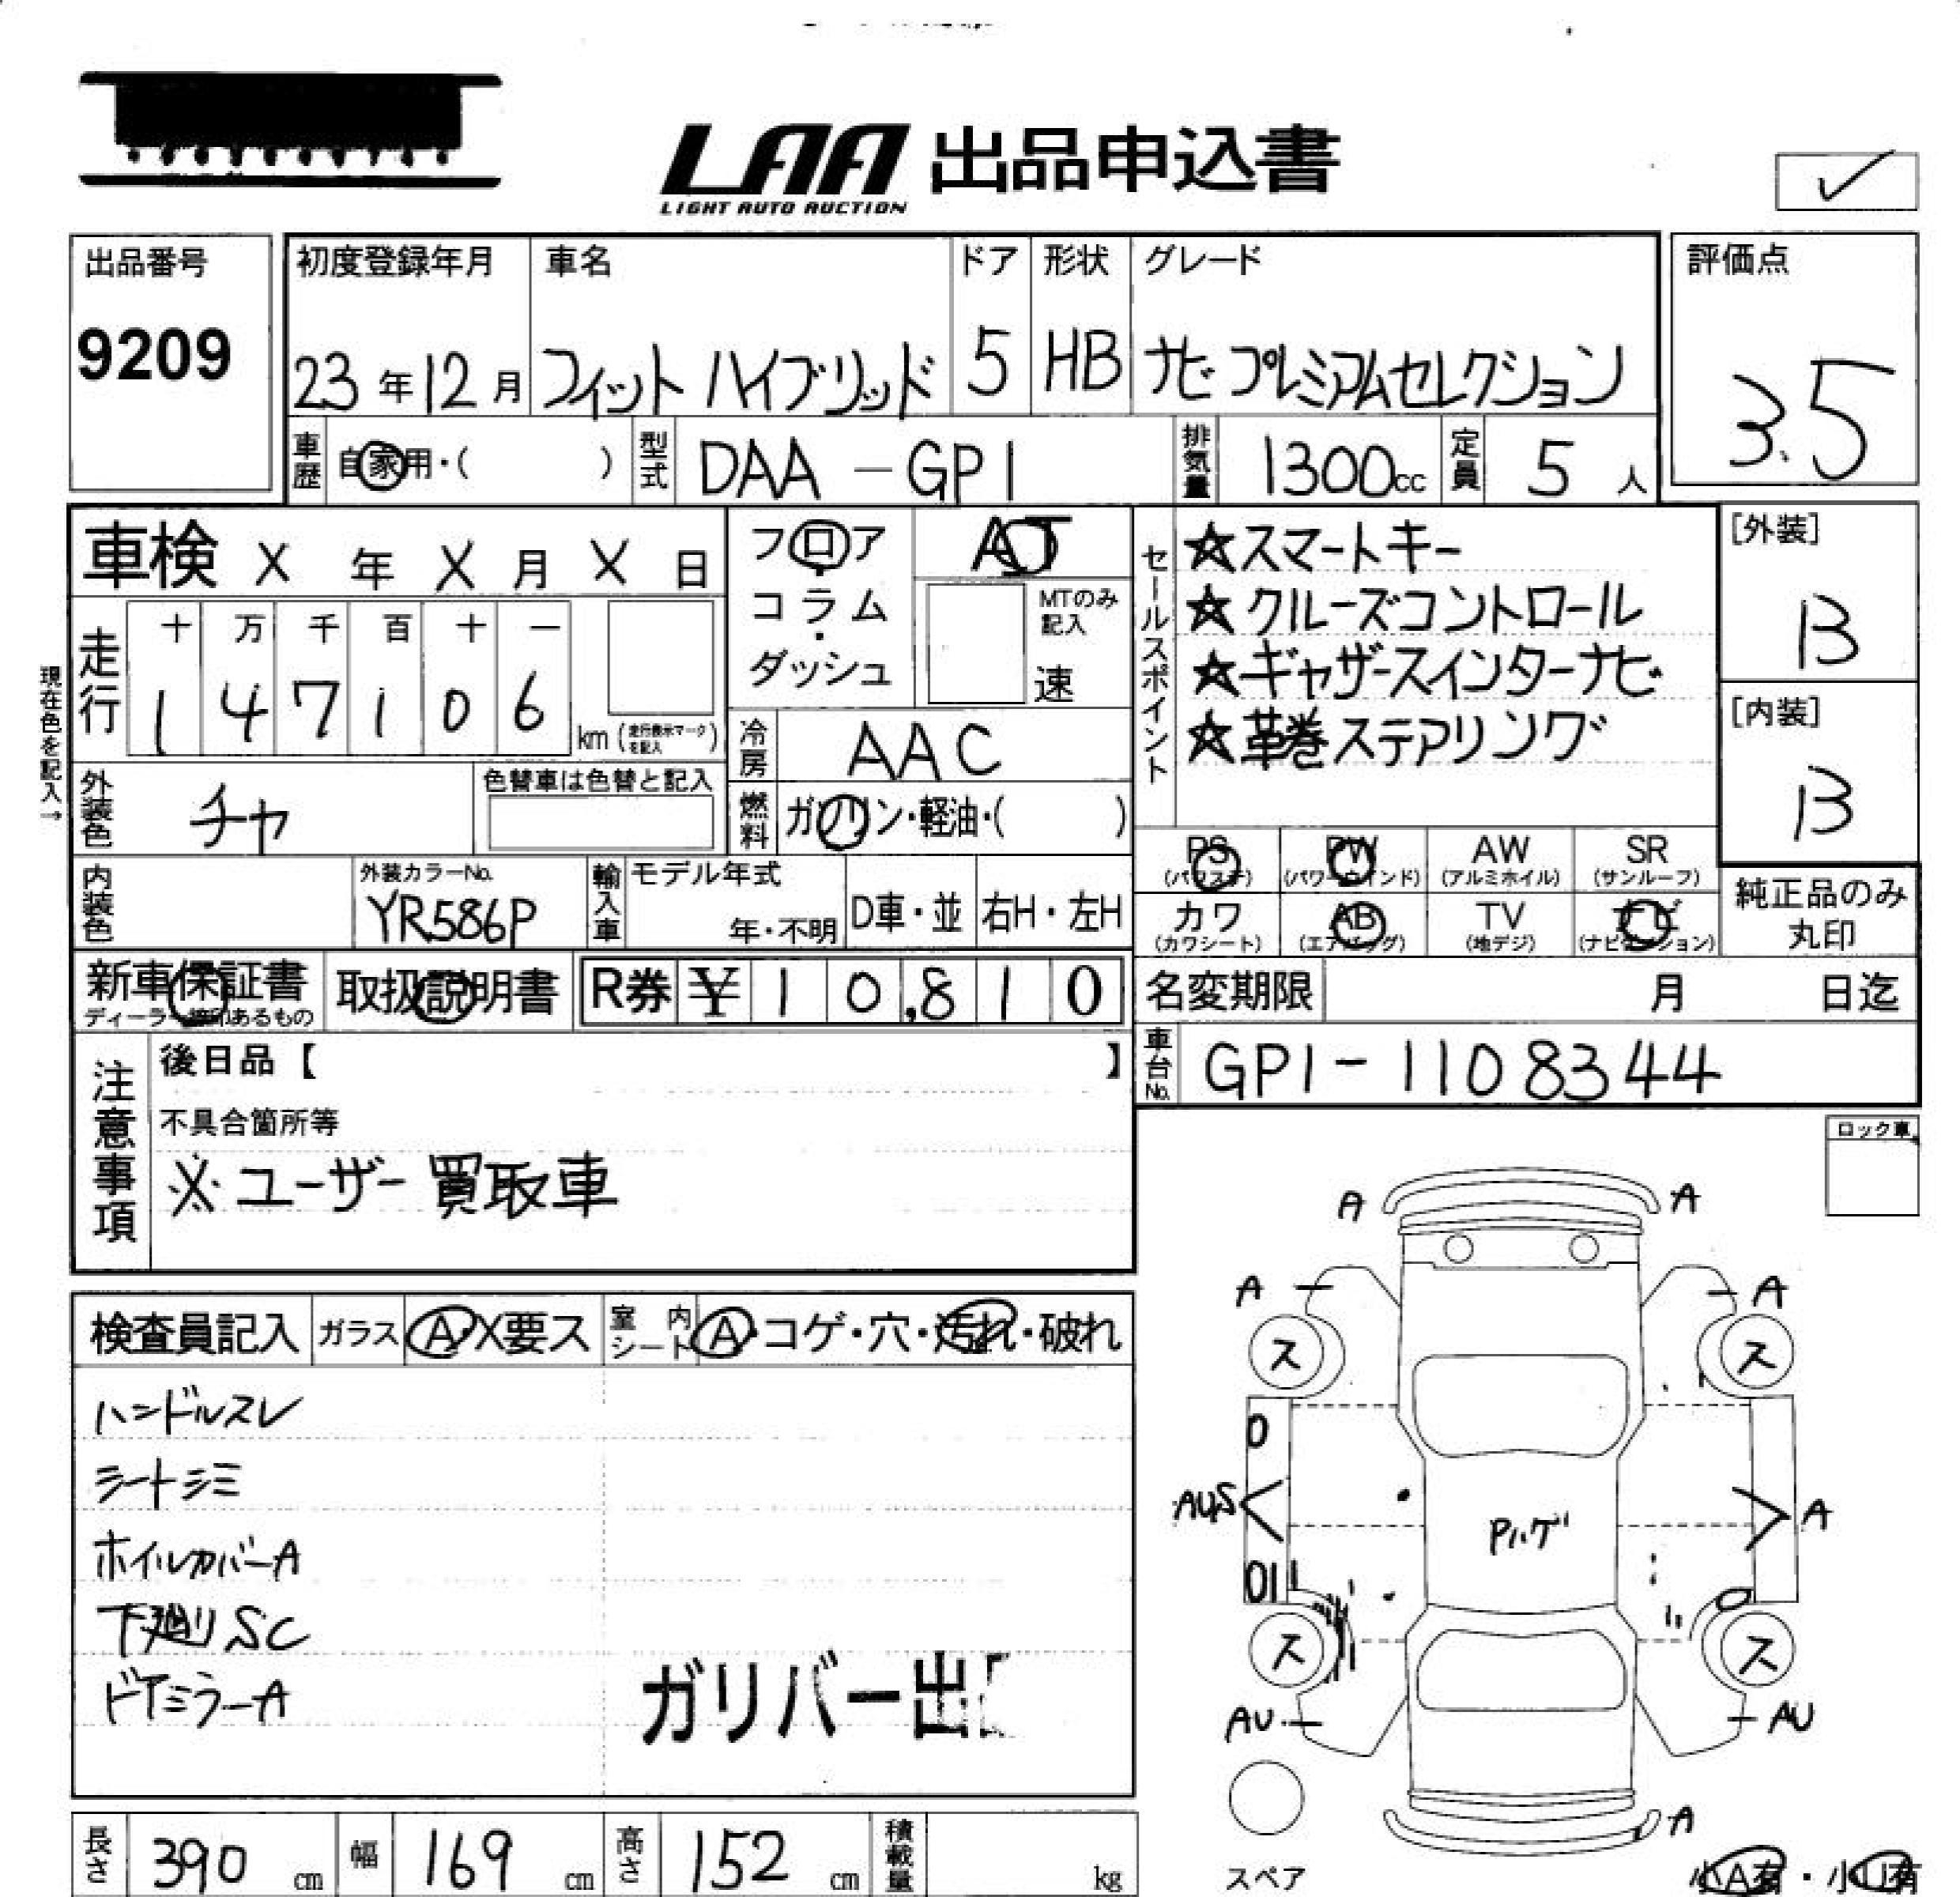 LAA 出品申込書
LIGHT AUTO AUCTION
✓
出品番号
9209
初度登録年月
23年12月
車名
フィット ハイブリッド
ドア
5
形状
HB
グレード
ナビ プレミアムセレクション
評価点
3.5
車歴
自家用・( )
型式
DAA-GP1
排気量
1300cc
定員
5人
車検 X年X月X日
フロア・コラム・ダッシュ
AT
MTのみ記入
速
セールスポイント
☆スマートキー
☆クルーズコントロール
☆ギャザースインターナビ
☆革巻ステアリング
[外装]
B
[内装]
B
現在色を記入→
走行
十 万 千 百 十 一
1 4 7 1 0 6 km (走行表示マークを記入)
冷房
AAC
外装色
チャ
色替車は色替と記入
燃料
ガソリン・軽油・( )
PS (パワステ)
PW (パワーウインド)
AW (アルミホイル)
SR (サンルーフ)
内装色
外装カラーNo.
YR586P
輸入車
モデル年式
年・不明
D車・並
右H・左H
カワ (カワシート)
AB (エアバッグ)
TV (地デジ)
ナビ (ナビゲーション)
純正品のみ丸印
新車保証書
取扱説明書
R券 ¥10,810
名変期限 月 日迄
車台No.
GP1-1108344
注意事項
後日品【 】
不具合箇所等
※ユーザー買取車
ロック車
検査員記入
ガラス
A・X要ス
室内シート
A・コゲ・穴・汚れ・破れ
ハンドルスレ
シートシミ
ホイルカバーA
下廻りSC
ドアミラーA
ガリバー出
A A
A A
ス ス
AUS
A
Pハゲ
ス ス
AU AU
A
スペア
小A有・小U有
長さ 390 cm
幅 169 cm
高さ 152 cm
積載量 kg